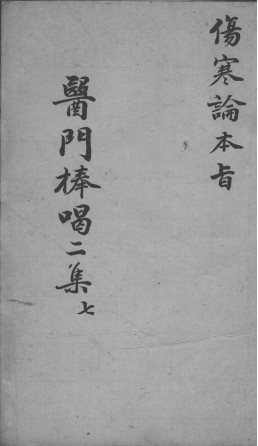 傷寒論本旨
醫門棒喝二集七